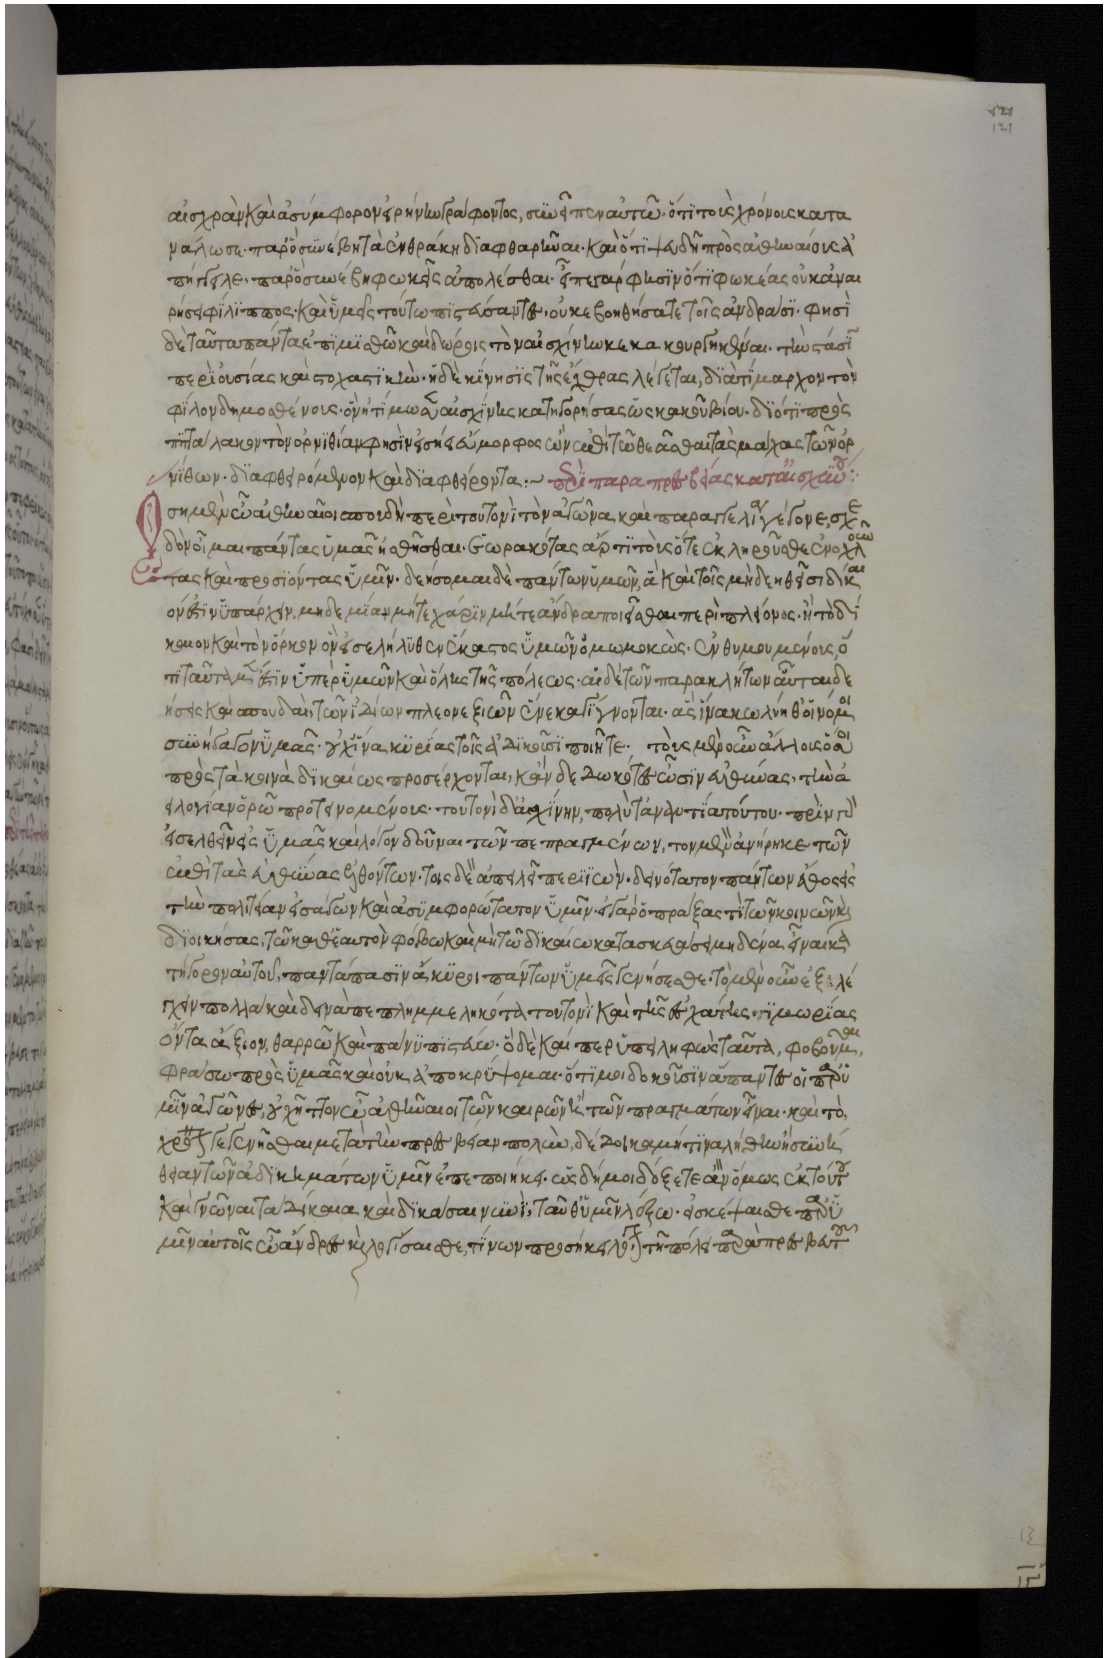 αἰσχρὰν καὶ ἀσύμφορον εἰρήνην γράφοντος, συνεῖπεν αὐτῶ· ὅτι τοὺς χρόνους κατα
νάλωσε· παρ' ὃ συνέβη τὰ ἐν θράκη διαφθαρῆναι· καὶ ὅτι ψευδῆ πρὸς ἀθηναίους ἀ
πήγγειλε· παρ' ὃ συνέβη φωκεῖς ἀπολέσθαι· εἶπε γάρ φησιν ὅτι φωκέας οὐκ ἀναι
ρήσει φίλιππος· καὶ ὑμεῖς τούτω πιστεύσαντες· οὐκ ἐβοηθήσατε τοῖς ἀνδράσι· φησὶ
δὲ ταῦτα πάντα ἐπὶ μισθῶ καὶ δώροις τὸν αἰσχίνην κεκακουργηκέναι· ἡ στάσις
περὶ οὐσίας καὶ στοχαστικὴ· ἡ δὲ κίνησις τῆς ἔχθρας λέγεται, διὰ τίμαρχον τὸν
φίλον δημοσθένους· ὃν ἠτίμωσεν αἰσχίνης κατηγορήσας ὡς κακοῦ βίου· διότι πρὸς
πιτάλακον τὸν ὀρνιθίαν φησὶν εἰσήει εὔμορφος ὢν ἐπὶ τῶ θεᾶσθαι τὰς μάχας τῶν ὀρ
νίθων· διαφθειρόμενον καὶ διαφθείροντα:~ περὶ παραπρεσβείας κατ' αἰσχίνου:
Ὅση μὲν ὦ ἀθηναῖοι σπουδὴ περὶ τουτονὶ τὸν ἀγῶνα καὶ παραγγελία γέγονε, σχε
δὸν οἶμαι πάντας ὑμᾶς ἠσθῆσθαι· ἑωρακότας ἄρτι τοὺς ὅτε ἐκληροῦσθε ἐνοχλοῦν
τας καὶ προσιόντας ὑμῖν· δεήσομαι δὲ πάντων ὑμῶν, ἃ καὶ τοῖς μὴ δεηθεῖσι δίκαι
όν ἐστιν ὑπάρχειν, μηδεμίαν μήτε χάριν μήτε ἄνδρα ποιεῖσθαι περὶ πλείονος· ἢ τὸ δί
καιον καὶ τὸν ὅρκον ὃν εἰσελήλυθεν ἕκαστος ὑμῶν ὀμωμοκὼς· ἐνθυμουμένους, ὅ
τι ταῦτα μέν ἐστιν ὑπὲρ ὑμῶν καὶ ὅλης τῆς πόλεως· αἱ δὲ τῶν παρακλήτων αὗται δε
ήσεις καὶ σπουδαὶ, τῶν ἰδίων πλεονεξιῶν ἕνεκα γίγνονται· ἃς ἵνα κωλύηθ' οἱ νόμοι
συνήγαγον ὑμᾶς· οὐχ ἵνα κυρίας τοῖς ἀδικοῦσι ποιῆτε· τοὺς μὲν οὖν ἄλλους ὅσοι
πρὸς τὰ κοινὰ δικαίως προσέρχονται, κἂν δεδωκότες ὦσιν εὐθύνας, τὴν ἀ
ειλογίαν ὁρῶ προτεινομένους· τουτονὶ δ' αἰσχίνην, πολὺ τἀναντία τούτου· πρὶν γὰρ
εἰσελθεῖν εἰς ὑμᾶς καὶ λόγον δοῦναι τῶν πεπραγμένων, τὸν μὲν ἀνήρηκε τῶν
ἐπὶ τὰς εὐθύνας ἐλθόντων· τοῖς δὲ ἀπειλεῖ περιϊών· δεινότατον πάντων ἔθος εἰς
τὴν πολιτείαν εἰσάγων καὶ ἀσυμφορώτατον ὑμῖν· εἰ γὰρ ὁ πράξας τι τῶν κοινῶν καὶ
διοικήσας, τῶ καθ' ἑαυτὸν φόβω καὶ μὴ τῶ δικαίω κατασκευάσει μηδένα εἶναι κα
τήγορον αὐτοῦ, παντάπασιν ἄκυροι πάντων ὑμεῖς γενήσεσθε· τὸ μὲν οὖν ἐξελέ
γχειν πολλὰ καὶ δεινὰ πεπλημμεληκότα τουτονὶ καὶ τῆς ἐσχάτης τιμωρίας
ὄντα ἄξιον, θαρρῶ καὶ πάνυ πιστεύω· ὃ δὲ καίπερ ὑπειληφὼς ταῦτα, φοβοῦμαι,
φράσω πρὸς ὑμᾶς καὶ οὐκ ἀποκρύψομαι· ὅτι μοι δοκοῦσιν ἅπαντες οἱ παρ' ὑ
μῖν ἀγῶνες, οὐχ ἧττον ὦ ἀθηναῖοι τῶν καιρῶν ἢ τῶν πραγμάτων εἶναι· καὶ τὸ
χρόνον γεγενῆσθαι μετὰ τὴν πρεσβείαν πολὺν, δέδοικα μή τινα λήθην ἢ συνή
θειαν τῶν ἀδικημάτων ὑμῖν ἐμπεποιήκει· ὡς δή μοι δοκεῖτε ἂν ὅμως ἐκ τούτων
καὶ γνῶναι τὰ δίκαια καὶ δικάσαι νυνὶ, ταῦθ' ὑμῖν λέξω· εἰ σκέψαισθε παρ' ὑ
μῖν αὐτοῖς ὦ ἄνδρες καὶ λογίσαισθε, τίνων προσήκει λόγον τῆ πόλει παρὰ πρεσβευτοῦ